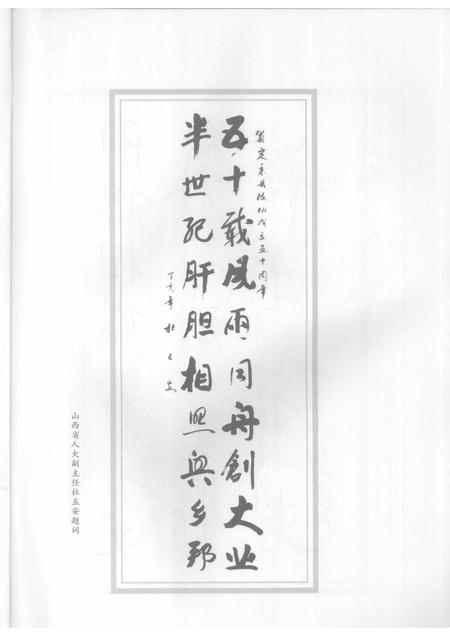 贺定襄县政协成立五十周年
五十载风雨同舟创大业
半世纪肝胆相照兴乡邦
丁亥年 杜五安
山西省人大副主任杜五安题词